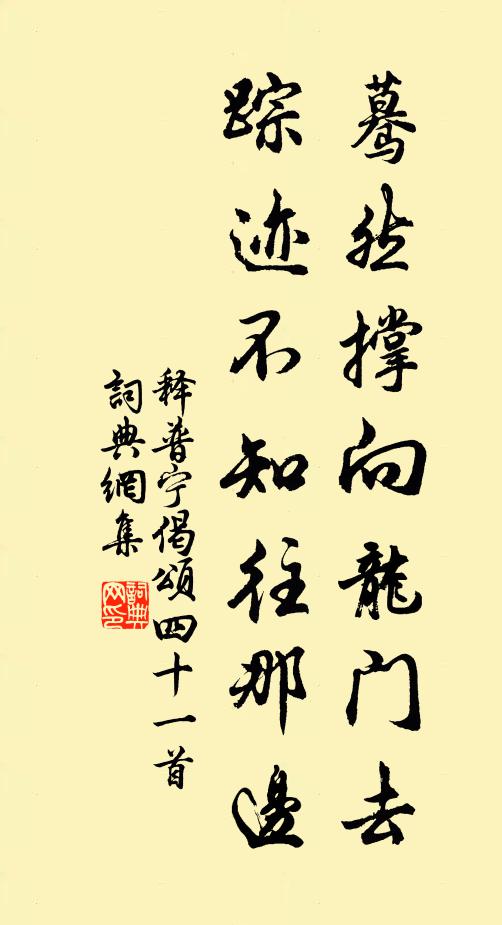 蓦然撑向龍门去
踪迹不知往那邊
释普宁偈頌四十一首
詞典網集
詞典网印